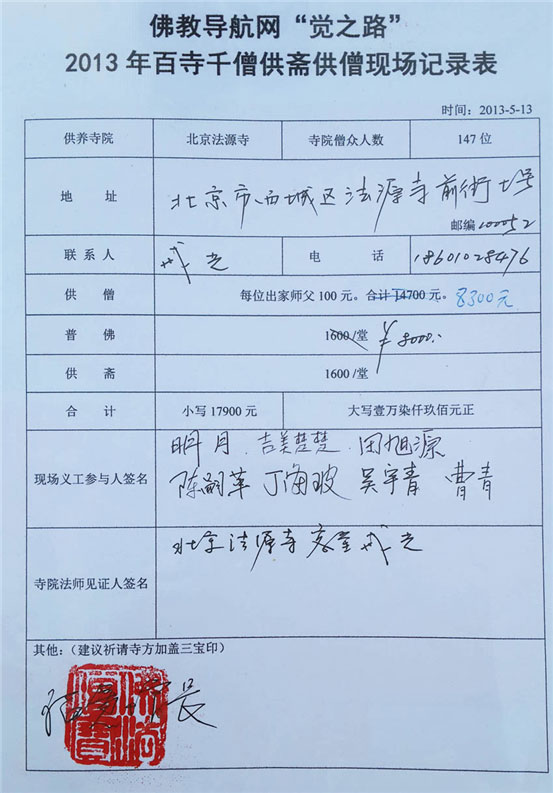 佛教导航网“觉之路”
2013年百寺千僧供斋供僧现场记录表
时间：2013-5-13
供养寺院 北京法源寺 寺院僧众人数 147位
地 址 北京市西城区法源寺前街七号
邮编100052
联系人 戒光 电 话 18601028476
供 僧 每位出家师父100元。合计14700元。8300元
普 佛 1600/堂 ¥8000.
供 斋 1600/堂
合 计 小写17900元 大写壹万柒仟玖佰元正
现场义工参与人签名 明月 吉美楚楚 田旭源
陈嗣革 丁海波 吴宇青 曹青
寺院法师见证人签名 北京法源寺客堂戒光
其他：（建议祈请寺方加盖三宝印）